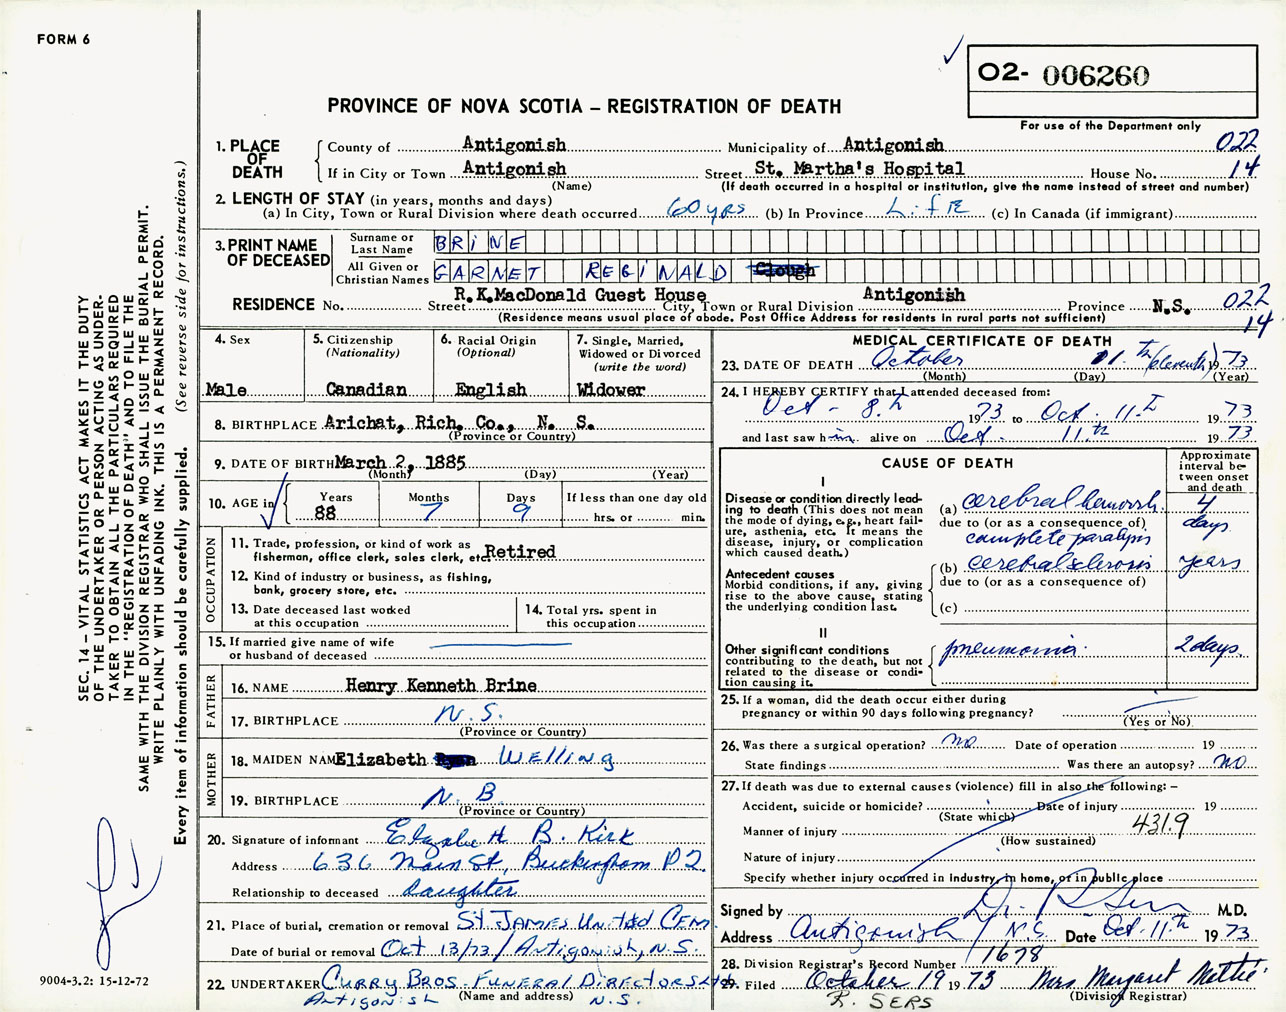 FORM 6
02- 006260
PROVINCE OF NOVA SCOTIA – REGISTRATION OF DEATH
For use of the Department only
1. PLACE OF DEATH
County of Antigonish Municipality of Antigonish 022
If in City or Town Antigonish Street St. Martha's Hospital House No. 14
(Name) (If death occurred in a hospital or institution, give the name instead of street and number)
2. LENGTH OF STAY (in years, months and days)
(a) In City, Town or Rural Division where death occurred 60 yrs (b) In Province Life (c) In Canada (if immigrant)
3. PRINT NAME OF DECEASED
Surname or Last Name BRINE
All Given or Christian Names GARNET REGINALD Clough
RESIDENCE No. Street R.K.MacDonald Guest House City, Town or Rural Division Antigonish Province N.S. 022
(Residence means usual place of abode. Post Office Address for residents in rural parts not sufficient) 14
SEC. 14 – VITAL STATISTICS ACT MAKES IT THE DUTY
OF THE UNDERTAKER OR PERSON ACTING AS UNDER-
TAKER TO OBTAIN ALL THE PARTICULARS REQUIRED
IN THE "REGISTRATION OF DEATH" AND TO FILE THE
SAME WITH THE DIVISION REGISTRAR WHO SHALL ISSUE THE BURIAL PERMIT.
WRITE PLAINLY WITH UNFADING INK. THIS IS A PERMANENT RECORD.
Every item of information should be carefully supplied. (See reverse side for instructions.)
4. Sex
Male
5. Citizenship
(Nationality)
Canadian
6. Racial Origin
(Optional)
English
7. Single, Married,
Widowed or Divorced
(write the word)
Widower
8. BIRTHPLACE Arichat, Rich. Co., N. S.
(Province or Country)
9. DATE OF BIRTH March 2, 1885
(Month) (Day) (Year)
10. AGE in
Years 88
Months 7
Days 9
If less than one day old
hrs. or min.
OCCUPATION
11. Trade, profession, or kind of work as
fisherman, office clerk, sales clerk, etc. Retired
12. Kind of industry or business, as fishing,
bank, grocery store, etc.
13. Date deceased last worked
at this occupation
14. Total yrs. spent in
this occupation
15. If married give name of wife
or husband of deceased
FATHER
16. NAME Henry Kenneth Brine
17. BIRTHPLACE N.S.
(Province or Country)
MOTHER
18. MAIDEN NAME Elizabeth Welling
19. BIRTHPLACE N.B.
(Province or Country)
20. Signature of informant Elizabeth B. Kirk
Address 636 Main St, Buckingham P2.
Relationship to deceased daughter
21. Place of burial, cremation or removal St James United Cem
Date of burial or removal Oct 13/73 / Antigonish, N.S.
22. UNDERTAKER Curry Bros. Funeral Directors Ltd
Antigonish (Name and address) N.S.
9004-3.2: 15-12-72
MEDICAL CERTIFICATE OF DEATH
23. DATE OF DEATH October 11th (eleventh) 1973
(Month) (Day) (Year)
24. I HEREBY CERTIFY that I attended deceased from:
Oct - 8th 1973 to Oct. 11th 1973
and last saw him alive on Oct. 11th 1973
CAUSE OF DEATH
Approximate
interval be-
tween onset
and death
I
Disease or condition directly lead-
ing to death (This does not mean
the mode of dying, e.g., heart fail-
ure, asthenia, etc. It means the
disease, injury, or complication
which caused death.)
(a) cerebral hemorrh. 4 days
due to (or as a consequence of)
complete paralysis
Antecedent causes
Morbid conditions, if any, giving
rise to the above cause, stating
the underlying condition last.
(b) cerebral sclerosis years
due to (or as a consequence of)
(c)
II
Other significant conditions
contributing to the death, but not
related to the disease or condi-
tion causing it.
pneumonia. 2 days.
25. If a woman, did the death occur either during
pregnancy or within 90 days following pregnancy?
(Yes or No)
26. Was there a surgical operation? no Date of operation 19
State findings Was there an autopsy? no
27. If death was due to external causes (violence) fill in also the following: –
Accident, suicide or homicide? Date of injury 19
(State which)
Manner of injury 431.9
(How sustained)
Nature of injury
Specify whether injury occurred in industry, in home, or in public place
Signed by Dr. R. Sers M.D.
Address Antigonish / N.S. Date Oct. 11th 1973
28. Division Registrar's Record Number 1678
29. Filed October 19 1973 Mrs Margaret Mattie
(Division Registrar)
R. SERS